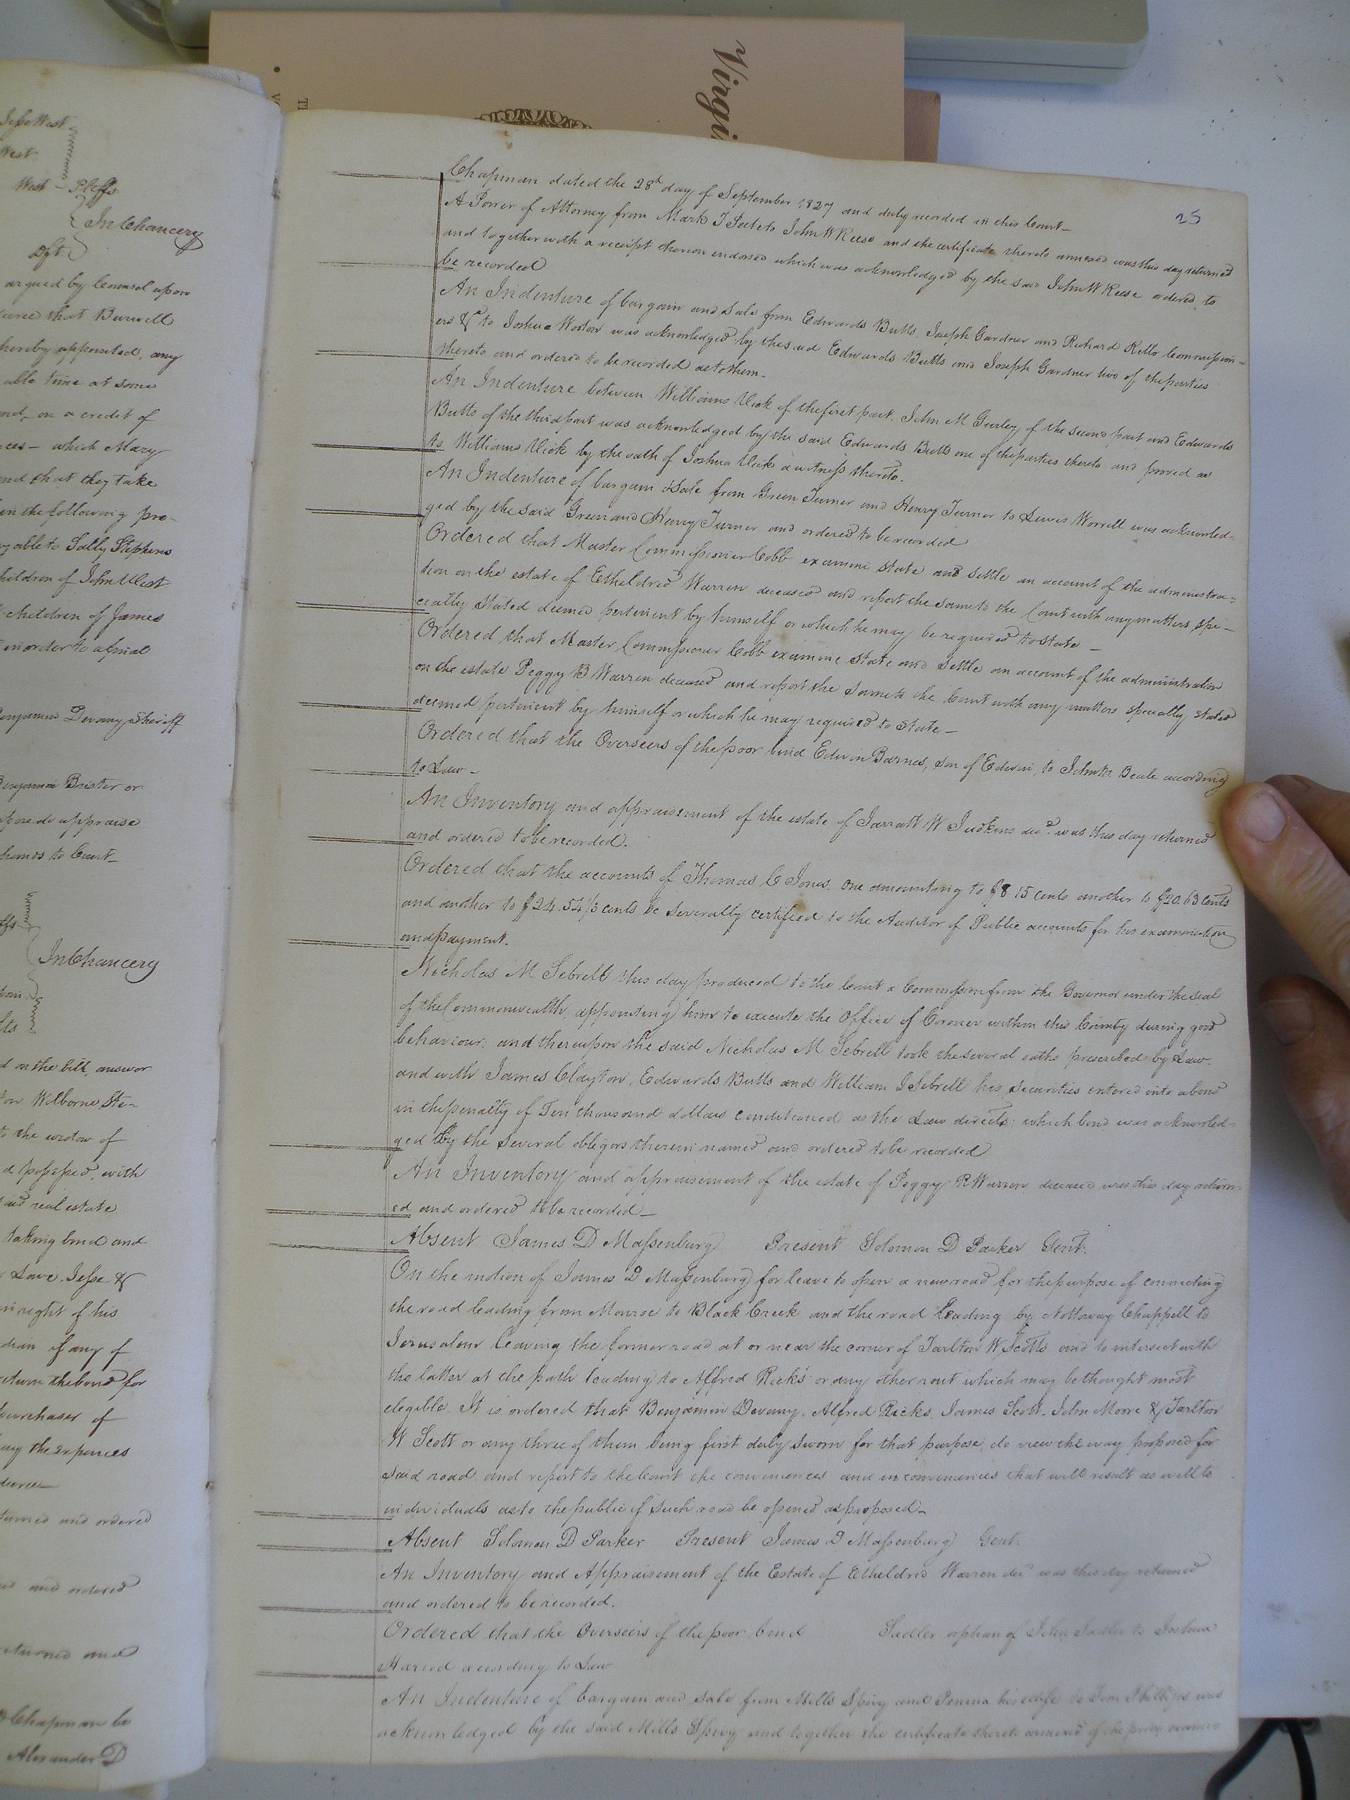 Virgi
25
Chapman dated the 28th day of September 1827 and duly recorded in this Court_
A Power of Attorney from Mark T to John W Reese and the certificate thereto annexed was this day returned
and together with a receipt thereon endorsed which was acknowledged by the said John W Reese ordered to
be recorded
An Indenture of bargain and Sale from Edwards Butts, Joseph Gardner and Richard Commission-
ers &c to Joshua was acknowledged by the said Edwards Butts and Joseph Gardner two of the parties
thereto and ordered to be recorded as to them.
An Indenture between Williams Vick of the first part, John M Gurley of the second part and Edwards
Butts of the third part was acknowledged by the said Edwards Butts one of the parties thereto and proved as
to Williams Vick by the oath of Joshua Vick a witness thereto.
An Indenture of bargain & Sale from Green Turner and Henry Turner to Lewis Worrell was acknowled-
ged by the said Green and Henry Turner and ordered to be recorded
Ordered that Master Commissioner Cobb examine state and settle an account of the administra-
tion on the estate of Etheldred Warren deceased and report the same to the Court with any matters spe-
cially stated deemed pertinent by himself or which he may be required to state_
Ordered that Master Commissioner Cobb examine state and settle an account of the administration
on the estate Peggy B Warren deceased and report the same to the Court with any matters specially stated
deemed pertinent by himself or which he may required to state_
Ordered that the Overseers of the poor bind Edwin Barnes, son of Edwin, to John Beale according
to Law_
An Inventory and appraisement of the estate of Jarratt W Judkins decd. was this day returned
and ordered to be recorded.
Ordered that the accounts of Thomas C Jones one amounting to $8 15 cents another to $20.63 cents
and another to $24.54 1/3 cents be severally certified to the Auditor of Public accounts for his examination
and payment.
Nicholas M Sebrell this day produced to the Court a Commission from the Governor under the seal
of the Commonwealth, appointing him to execute the Office of Coroner within this County during good
behaviour, and thereupon the said Nicholas M Sebrell took the several oaths prescribed by Law.
and with James Clayton, Edwards Butts and William J Sebrell his securities entered into a bond
in the penalty of Ten thousand dollars conditioned as the Law directs; which bond was acknowled-
ged by the several obligors therein named and ordered to be recorded
An Inventory and appraisement of the estate of Peggy R Warren deceased was this day return-
ed and ordered to be recorded_
Absent James D Massenburg Present Solomon D Parker Gent.
On the motion of James D Massenburg for leave to open a new road for the purpose of connecting
the road leading from Monroe to Black Creek and the road leading by Nottoway Chappell to
Jerusalem leaving the former road at or near the corner of Tarlton W Scotts and to intersect with
the latter at the path leading to Alfred Ricks' or any other rout which may be thought most
elegible. It is ordered that Benjamin Devany, Alfred Ricks, James Scott, John Moore & Tarlton
W Scott or any three of them being first duly sworn for that purpose, do view the way proposed for
said road and report to the Court the conveniences and inconveniences that will result as well to
individuals as to the public if such road be opened as proposed_
Absent Solomon D Parker Present James D Massenburg Gent.
An Inventory and Appraisement of the Estate of Etheldred Warren decd was this day returned
and ordered to be recorded.
Ordered that the Overseers of the poor bind Sadler orphan of John Sadler to Joshua
according to Law
An Indenture of bargain and sale from Mills Spivy and Penina his wife to was
acknowledged by the said Mills Spivy and together the certificate thereto annexed of the privy
Jesse West
West
West Pltffs
In Chancery
Dft
argued by Counsel upon
that Burwell
hereby appointed, any
able time at some
and, on a credit of
which Mary
and that they take
in the following pro-
able to Sally Stephens
children of John West
children of James
in order to a final
Benjamin Devany Sheriff
Benjamin Brister or
do appraise
hands to Court_
In Chancery
on the bill, answer
Wilborne Ste-
to the widow of
possessed, with
real estate
taking bond and
Love, Jesse &
in right of his
if any of
return the bond for
purchaser of
pay the expences
decree_
and ordered
and ordered
returned and
Chapman be
Alexander D